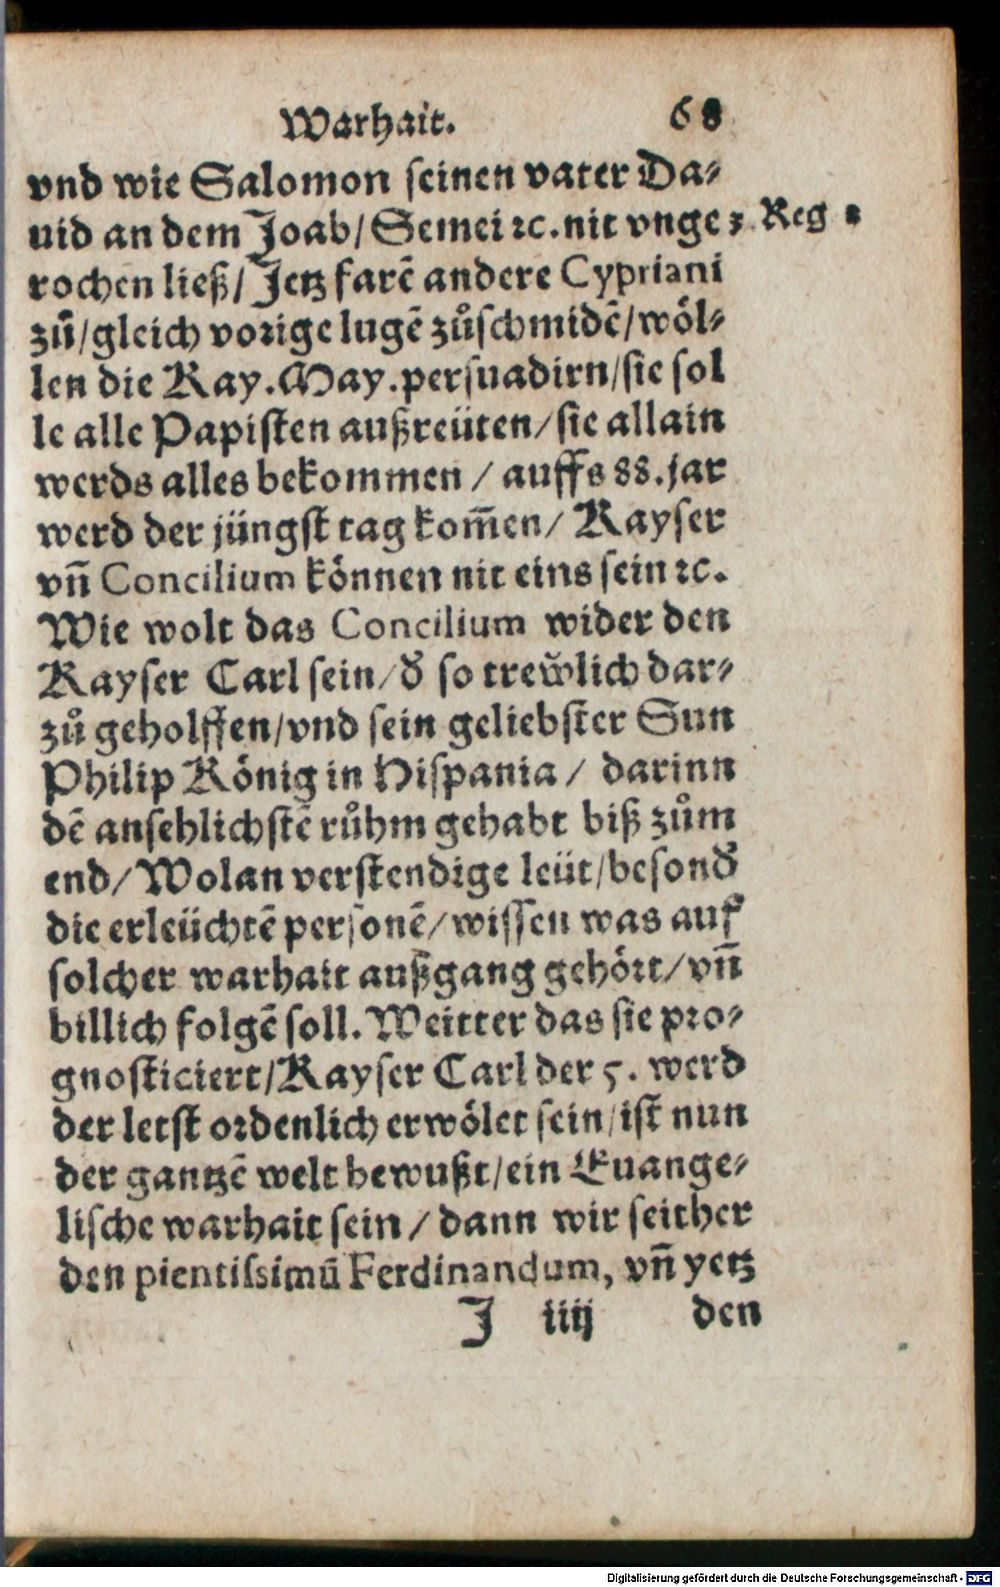 Warhait. 68
vnd wie Salomon seinen vater Da⸗
uid an dem Joab/ Semei ꝛc. nit vnge⸗ 3. Reg 2
rochen ließ/ Jetz farē andere Cypriani
zů/ gleich vorige lugē zůschmidē/ wöl⸗
len die Kay. May. persuadirn/ sie sol
le alle Papisten außreüten/ sie allain
werds alles bekommen / auffs 88. jar
werd der jüngst tag kom̄en/ Kayser
vn̄ Concilium können nit eins sein ꝛc.
Wie wolt das Concilium wider den
Kayser Carl sein/ d' so trewlich dar⸗
zů geholffen/ vnd sein geliebster Sun
Philip König in Hispania / darinn
dē ansehlichstē růhm gehabt biß zům
end/ Wolan verstendige leüt/ besond'
die erleüchtē personē/ wissen was auf
solcher warhait außgang gehört/ vn̄
billich folgē soll. Weitter das sie pro⸗
gnosticiert/ Kayser Carl der 5. werd
der letst ordenlich erwölet sein/ ist nun
der gantzē welt bewußt/ ein Euange⸗
lische warhait sein / dann wir seither
den pientissimū Ferdinandum, vn̄ yetz
J iiij den
Digitalisierung gefördert durch die Deutsche Forschungsgemeinschaft - DFG